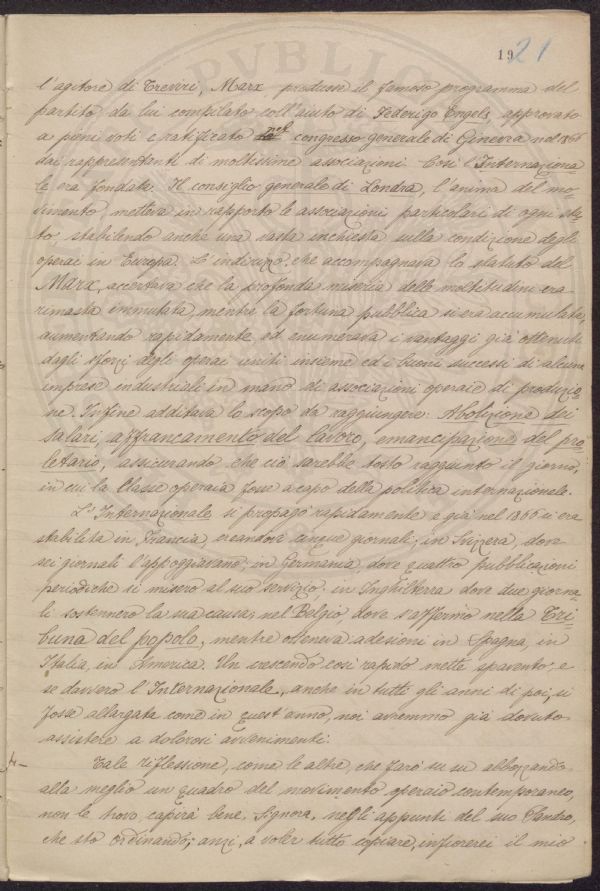 19 21
l'agitore di Treviri, Marx produsse il famoso programma del
partito, da lui compilato coll'aiuto di Federigo Engels, approvato
a pieni voti e ratificato nel congresso generale di Ginevra nel 1866
dai rappresentanti di moltissime associazioni. Così l'Internaziona
le era fondata. Il consiglio generale di Londra, l'anima del mo-
vimento, metteva in rapporto le associazioni particolari di ogni sta
to, stabilendo anche una vasta inchiesta sulla condizione degli
operai in Europa. L'indirizzo, che accompagnava lo statuto del
Marx, accertava che la profonda miseria delle moltitudini era
rimasta immutata, mentre la fortuna pubblica si era accumulata,
aumentando rapidamente ed enumerava i vantaggi già ottenuti
dagli sforzi degli operai uniti insieme ed i buoni successi di alcune
imprese industriali in mano di associazioni operaie di produzio
ne. Infine additava lo scopo da raggiungere: Abolizione dei
salari, affrancamento del lavoro, emancipazione del pro
letario, assicurando, che ciò sarebbe tosto raggiunto il giorno,
in cui la Classe operaia fosse a capo della politica internazionale.
L'Internazionale si propagò rapidamente e già nel 1866 si era
stabilita in Francia, creandovi cinque giornali; in Svizzera, dove
sei giornali l'appoggiavano; in Germania, dove quattro pubblicazioni
periodiche si misero al suo servizio, in Inghilterra dove due giorna
li sostennero la sua causa; nel Belgio, dove s'affermò nella Tri
buna del popolo, mentre otteneva adesioni in Spagna, in
Italia, in America. Un crescendo così rapido mette spavento; e
se davvero l'Internazionale, anche in tutti gli anni di poi, si
fosse allargata come in quest'anno, noi avremmo già dovuto
assistere a dolorosi avvenimenti.
Tale riflessione, come le altre, che farò su su abbozzando
alla meglio un quadro del movimento operaio contemporaneo,
non le trovo, capirà bene, Signora, negli appunti del suo Sandro,
che sto ordinando; anzi, a voler tutto copiare, infiorerei il mio